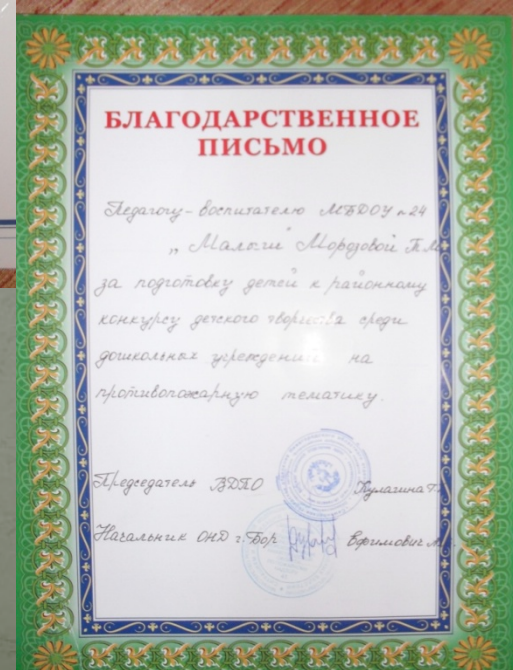 БЛАГОДАРСТВЕННОЕ
ПИСЬМО
Педагогу-воспитателю МБДОУ №24
за подготовку детей к районному
конкурсу детского творчества среди
дошкольных учреждений на
противопожарную тематику.
Председатель ВДПО Кулагина
Начальник ОНД г. Бор Ефимович